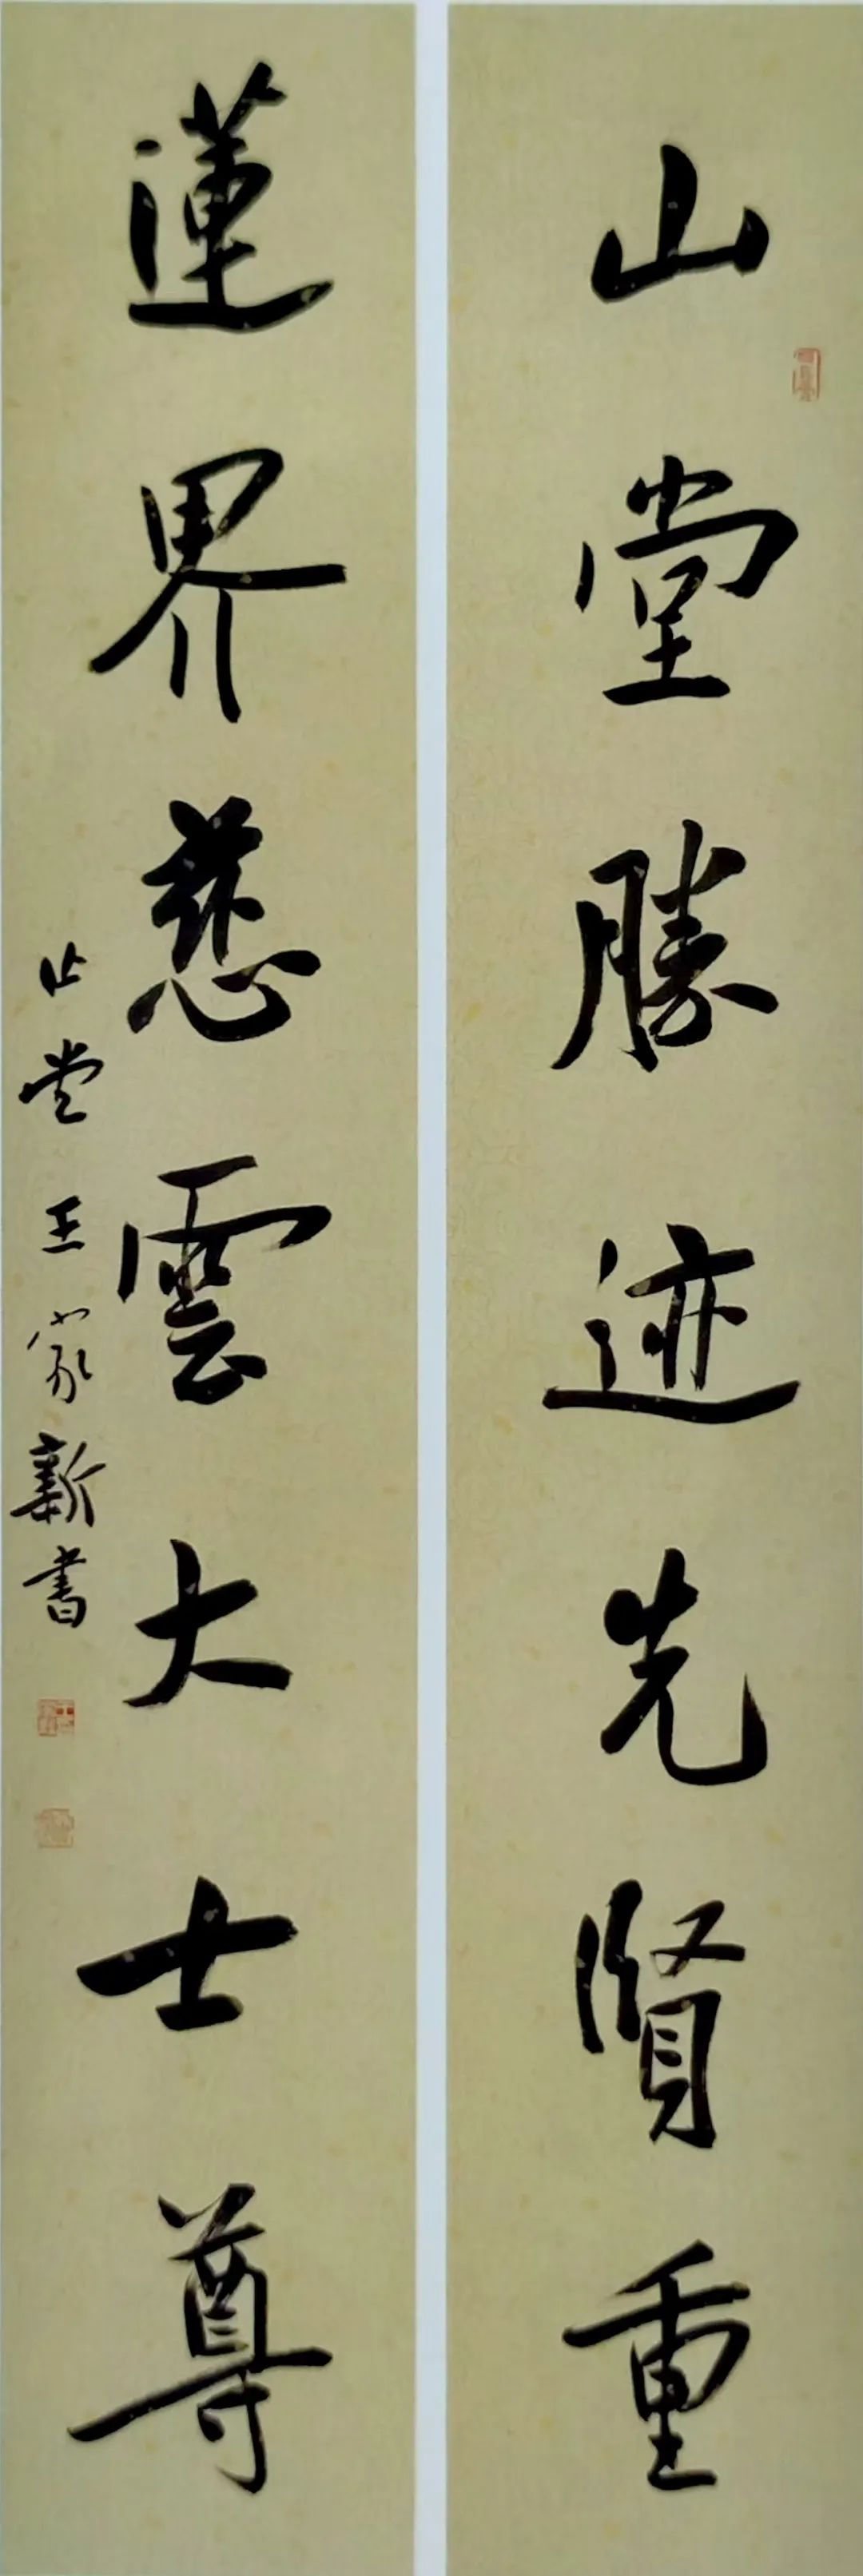 山堂勝迹先賢重
蓮界慈雲大士尊
止堂王家新書